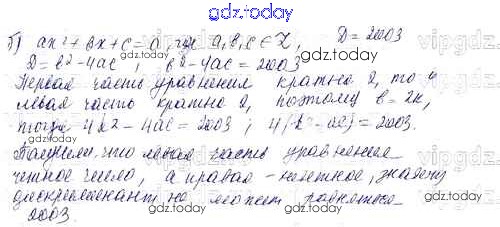 gdz.today
б) ax²+вx+c=0, где a,в,c ∈ Z, D=2003
D=в²-4ac; в²-4ac=2003
Первая часть уравнения кратна 2, то и
левая часть кратна 2, поэтому в=2к,
тогда 4к²-4ac=2003; 4(к²-ac)=2003.
Получили, что левая часть уравнения
четное число, а правая - нечетное, значит
дискриминант не может равняться
2003.
gdz.today